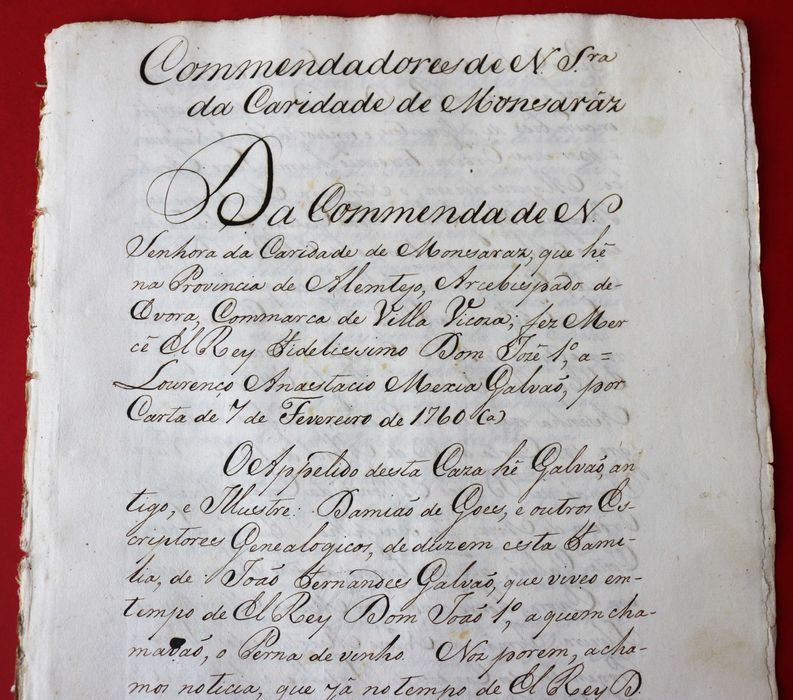 Commendadores de N. Sra
da Caridade de Monsaráz
Da Commenda de N.
Senhora da Caridade de Monsaraz, que hé
na Provincia de Alemtejo, Arcebispado de
Evora, Commarca de Villa Vicoza; fez Mer
cê El Rey Fidelissimo Dom Jozé 1.º, a =
Lourenço Anastacio Mexia Galvaõ, por
Carta de 7 de Fevereiro de 1760 (a)
O Appelido desta Caza hé Galvaõ, an
tigo, e Illustre: Damiaõ de Goes, e outros Es-
criptores Genealogicos, deduzem esta Fami-
lia, de Joaõ Fernandes Galvaõ, que viveo em-
tempo de El Rey Dom Joaõ 1.º, a quem cha-
mavaõ, o Perna de vinho. Noz porem, acha-
mos noticia, que já no tempo de El Rey D.